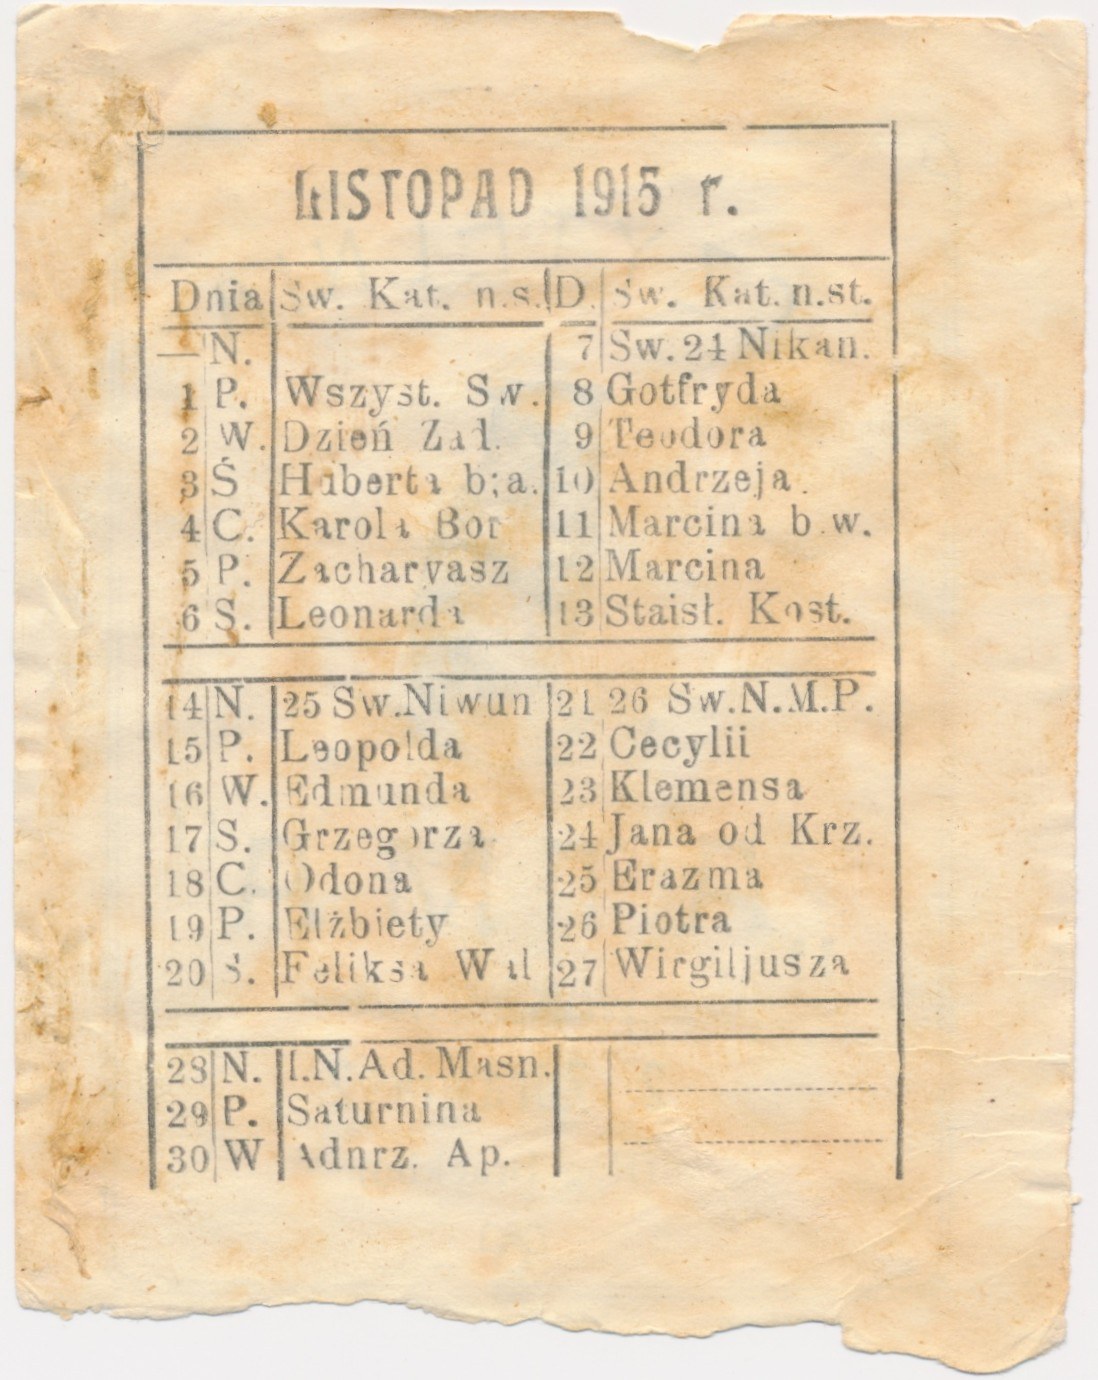 LISTOPAD 1915 r.
Dnia Sw. Kat. n.s. D. Sw. Kat. n.st.
— N. 7 Sw. 24 Nikan.
1 P. Wszyst. Sw. 8 Gotfryda
2 W. Dzień Zad. 9 Teodora
3 Ś Huberta b;a. 10 Andrzeja.
4 C. Karola Bor 11 Marcina b.w.
5 P. Zacharyasz 12 Marcina
6 S. Leonarda 13 Staisł. Kost.
14 N. 25 Sw.Niwun 21 26 Sw.N.M.P.
15 P. Leopolda 22 Cecylii
16 W. Edmunda 23 Klemensa
17 S. Grzegorza 24 Jana od Krz.
18 C. Odona 25 Erazma
19 P. Elżbiety 26 Piotra
20 S. Feliksa Wal 27 Wirgiljusza
28 N. I.N.Ad. Masn.
29 P. Saturnina
30 W Adnrz. Ap.